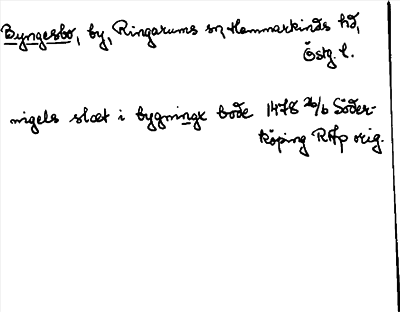 Byngesbo, by, Ringarums sn, Hammarkinds hd,
Östg. l.
nigels slæt i bygninge bode 1478 26/6 Söder-
köping RAp orig.